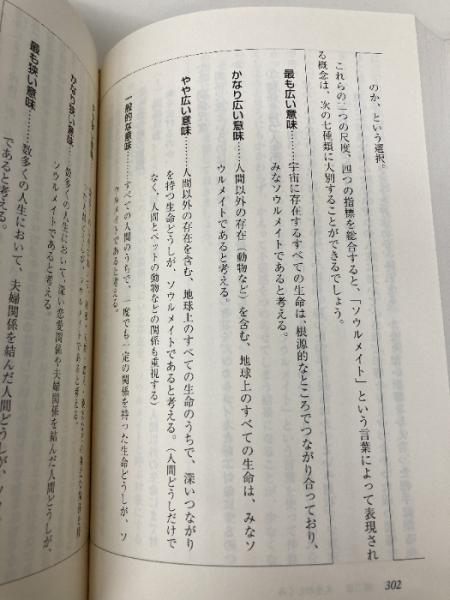 のか、という選択。
これらの二つの尺度、四つの指標を総合すると、「ソウルメイト」という言葉によって表現され
る概念は、次の七種類に大別することができるでしょう。
最も広い意味………宇宙に存在するすべての生命は、根源的なところでつながり合っており、
みなソウルメイトであると考える。
かなり広い意味………人間以外の存在(動物など)を含む、地球上のすべての生命は、みなソ
ウルメイトであると考える。
やや広い意味………人間以外の存在を含む、地球上のすべての生命のうちで、深いつながり
を持つ生命どうしが、ソウルメイトであると考える。(人間どうしだけで
なく、人間とペットの動物などの関係も重視する)
一般的な意味………すべての人間のうちで、一度でも一定の関係を持った生命どうしが、ソ
ウルメイトであると考える。
かなり狭い意味………数多くの人生において、深い恋愛関係や夫婦関係を結んだ人間どうしが、
ソウルメイトであると考える。
最も狭い意味………数多くの人生において、夫婦関係を結んだ人間どうしが、ソ
であると考える。
302